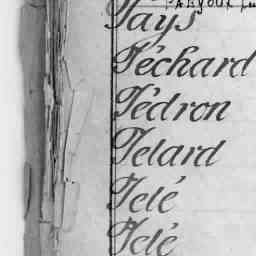 Pays
Péchard
Pédron
Pelard
Pelé
Pelé